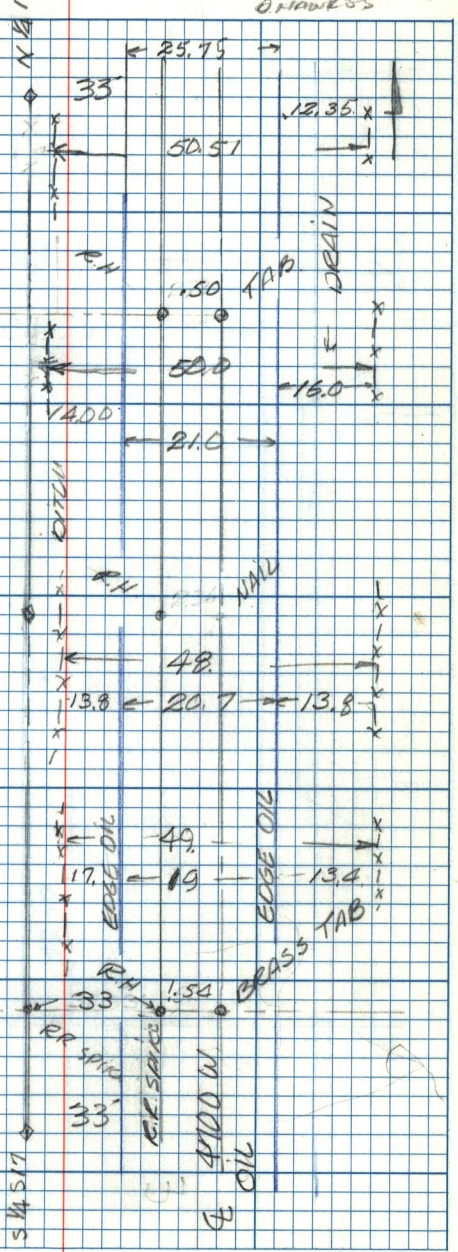 N 1/4
← 25.75 →
33'
12.35 x
50.51
R.H
.50 TAB
← DRAIN
50.0
16.0
14.00
← 21.0 →
DITCH
R.H
NAIL
48.
13.8 ← 20.7 → 13.8
49.
17. ← 19 13.4
EDGE OIL
EDGE OIL
BRASS TAB
R.H
33 1.54
RR SPIKE
R.R. SPIKE
33'
4700 W
℄ OIL
S 1/4 S 17